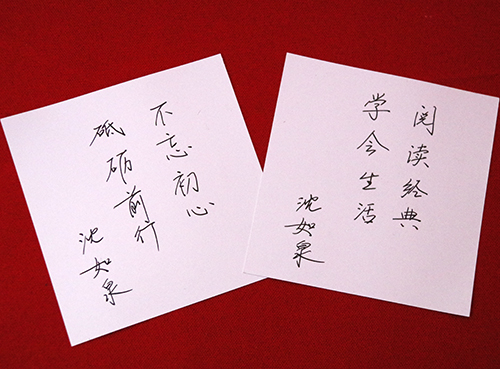 不忘初心
砥砺前行
沈如泉
阅读经典
学会生活
沈如泉